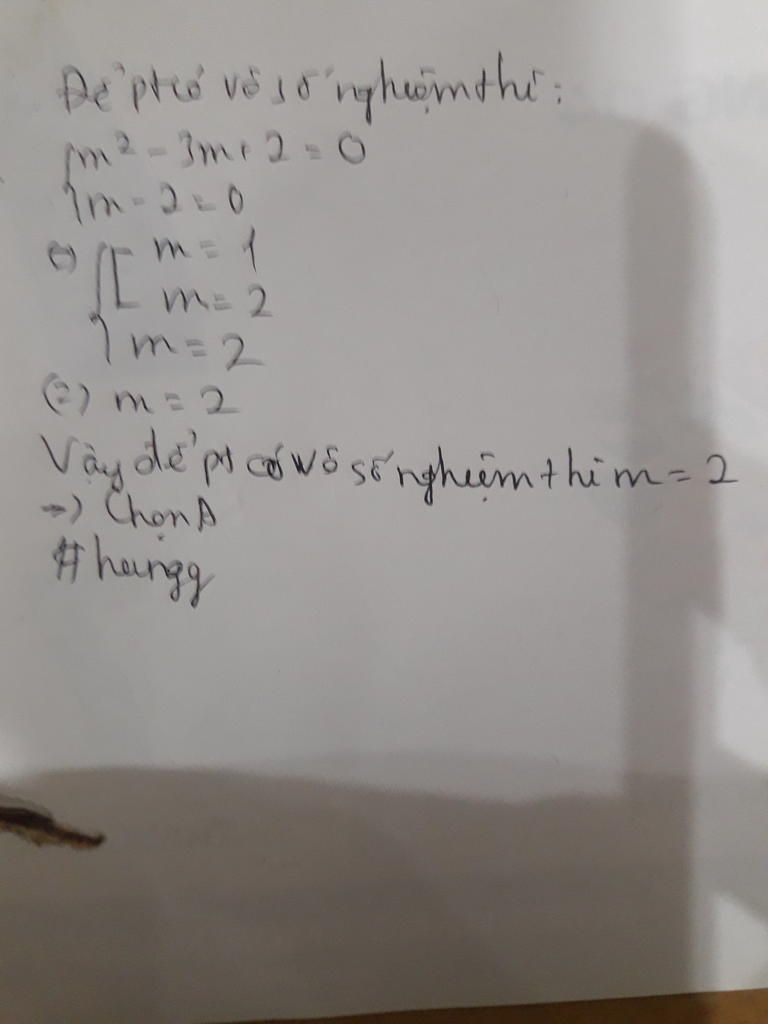 Để pt có vô số nghiệm thì:
{ m² - 3m + 2 = 0
m - 2 = 0
(=) { [ m = 1
m = 2
m = 2
(=) m = 2
Vậy để pt có vô số nghiệm thì m = 2
=) Chọn A